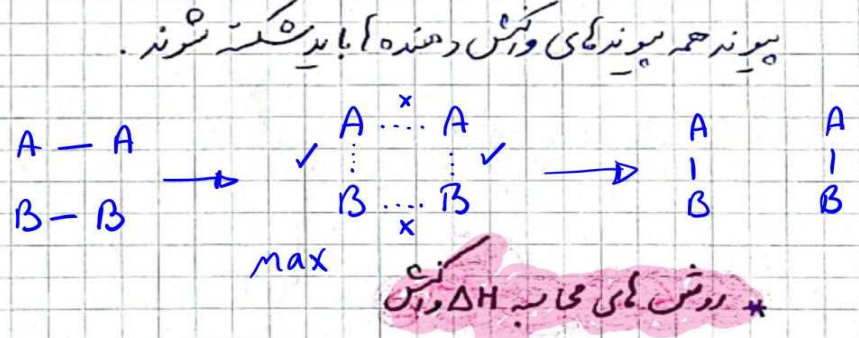 پیوند همه پیوندهای واکنش دهنده ها باید شکسته شوند.
A ..x.. A
A — A → ✓ ⋮ ⋮ ✓ → A A
B — B B ..x.. B B B
max
* روش های محاسبه ΔH واکنش